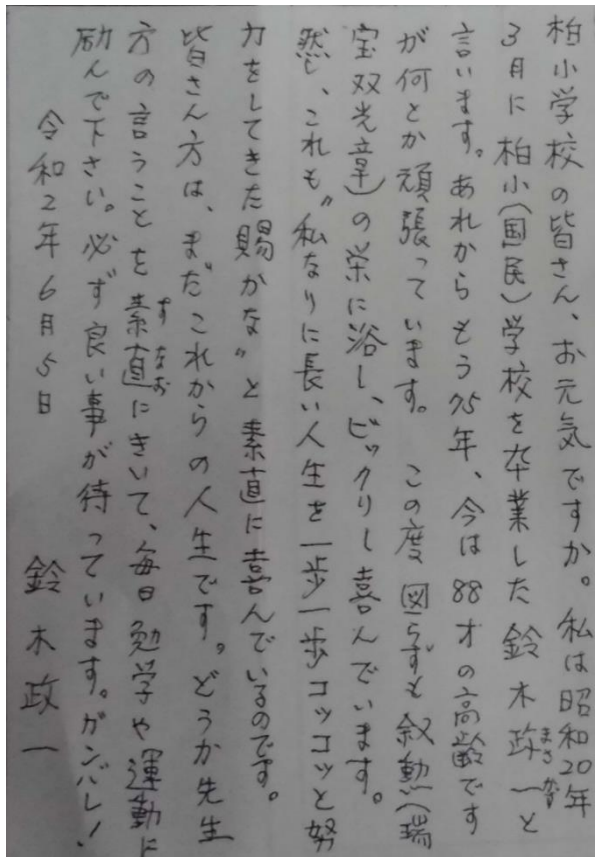 柏小学校の皆さん、お元気ですか。私は昭和20年
3月に柏小(国民)学校を卒業した鈴木政一と
まさかず
言います。あれからもう75年、今は88才の高齢です
が何とか頑張っています。この度図らずも叙勲(瑞
宝双光章)の栄に浴し、ビックリし喜んでいます。
然し、これも〝私なりに長い人生を一歩一歩コツコツと努
力をしてきた賜かな〟と素直に喜んでいるのです。
皆さん方は、まだこれからの人生です。どうか先生
方の言うことを素直にきいて、毎日勉学や運動に
すなお
励んで下さい。必ず良い事が待っています。ガンバレ!
令和2年6月5日 鈴木政一